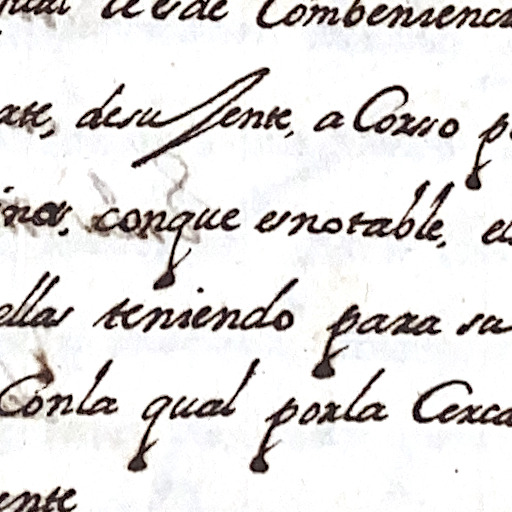 de Combenienci
desu Jente, a Corso p
conque esnotable, el
ellas teniendo para su
Conla qual porla Cerca
ente